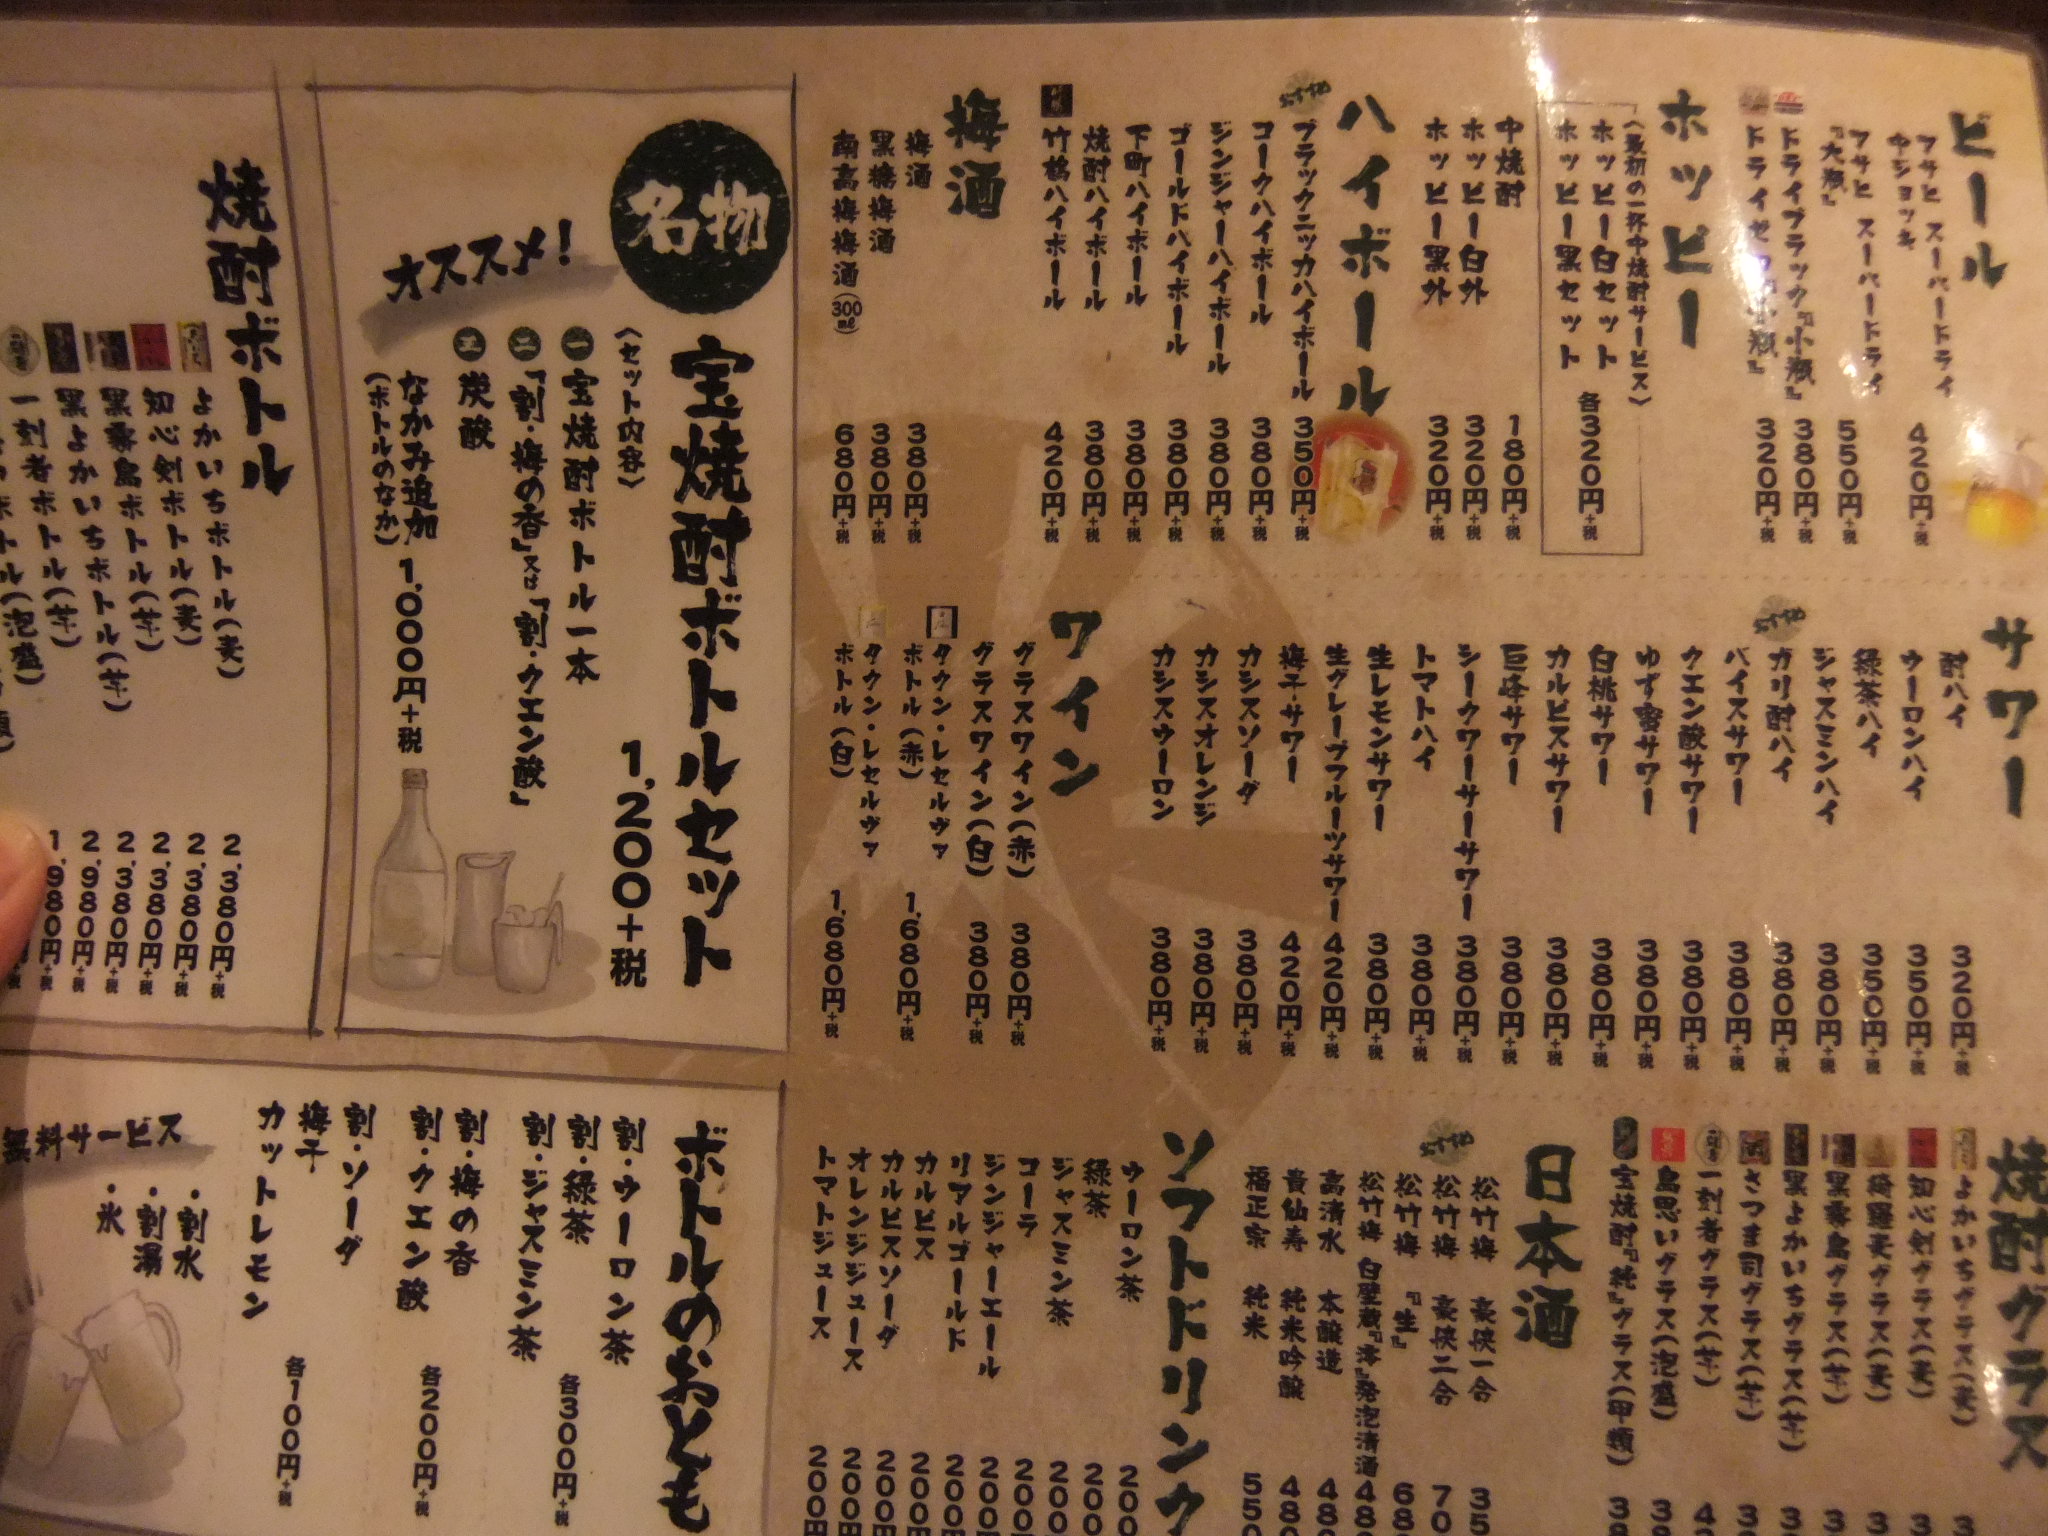 ビール
アサヒ スーパードライ
中ジョッキ 420円+税
アサヒ スーパードライ
『大瓶』 550円+税
ドライブラック『小瓶』 380円+税
320円+税
ホッピー
〈最初の一杯中焼酎サービス〉
ホッピー白セット
ホッピー黒セット
各320円+税
中焼酎 180円+税
ホッピー白外 320円+税
ホッピー黒外 320円+税
ハイボール
おすすめ
ブラックニッカハイボール 350円+税
コークハイボール 380円+税
ジンジャーハイボール 380円+税
ゴールドハイボール 380円+税
下町ハイボール 380円+税
焼酎ハイボール 380円+税
竹鶴ハイボール 420円+税
梅酒
梅酒 380円+税
黒糖梅酒 380円+税
南高梅梅酒(300ml) 680円+税
サワー
酎ハイ 320円+税
ウーロンハイ 350円+税
緑茶ハイ 350円+税
ジャスミンハイ 380円+税
おすすめ
ガリ酎ハイ 380円+税
バイスサワー 380円+税
クエン酸サワー 380円+税
ゆず蜜サワー 380円+税
白桃サワー 380円+税
カルピスサワー 380円+税
巨峰サワー 380円+税
シークワーサーサワー 380円+税
トマトハイ 380円+税
生レモンサワー 380円+税
生グレープフルーツサワー 420円+税
梅干サワー 420円+税
カシスソーダ 380円+税
カシスオレンジ 380円+税
カシスウーロン 380円+税
ワイン
グラスワイン(赤) 380円+税
グラスワイン(白) 380円+税
タクン・レセルヴァ
ボトル(赤) 1,680円+税
タクン・レセルヴァ
ボトル(白) 1,680円+税
焼酎グラス
よかいちグラス(麦)
知心剣グラス(麦)
綺羅麦グラス(麦)
黒霧島グラス(芋)
黒よかいちグラス(芋)
さつま司グラス(芋)
一刻者グラス(芋)
島思いグラス(泡盛)
宝焼酎『純』グラス(甲類)
日本酒
松竹梅 豪快一合
おすすめ
松竹梅 豪快二合
松竹梅 『生』
松竹梅 白壁蔵『澪』発泡清酒
高清水 本醸造
貴仙寿 純米吟醸
福正宗 純米
ソフトドリンク
ウーロン茶 200
緑茶 200
ジャスミン茶 200
コーラ 200
ジンジャーエール 200
リアルゴールド 200円
カルピス 200円
カルピスソーダ 200円
オレンジジュース 200円
トマトジュース 200円
名物
宝焼酎ボトルセット
1,200+税
オススメ!
〈セット内容〉
一 宝焼酎ボトル一本
二 『割・梅の香』又は『割・クエン酸』
三 炭酸
なかみ追加 1,000円+税
(ボトルのなか)
焼酎ボトル
よかいちボトル(麦) 2,380円+税
知心剣ボトル(麦) 2,380円+税
黒霧島ボトル(芋) 2,380円+税
黒よかいちボトル(芋) 2,380円+税
一刻者ボトル(芋) 2,980円+税
(泡盛) 1,980円+税
ボトルのおとも
割・ウーロン茶
割・緑茶
割・ジャスミン茶
各300円+税
割・梅の香
割・クエン酸
各200円+税
割・ソーダ
梅干
カットレモン
各100円+税
無料サービス
・割水
・割湯
・氷